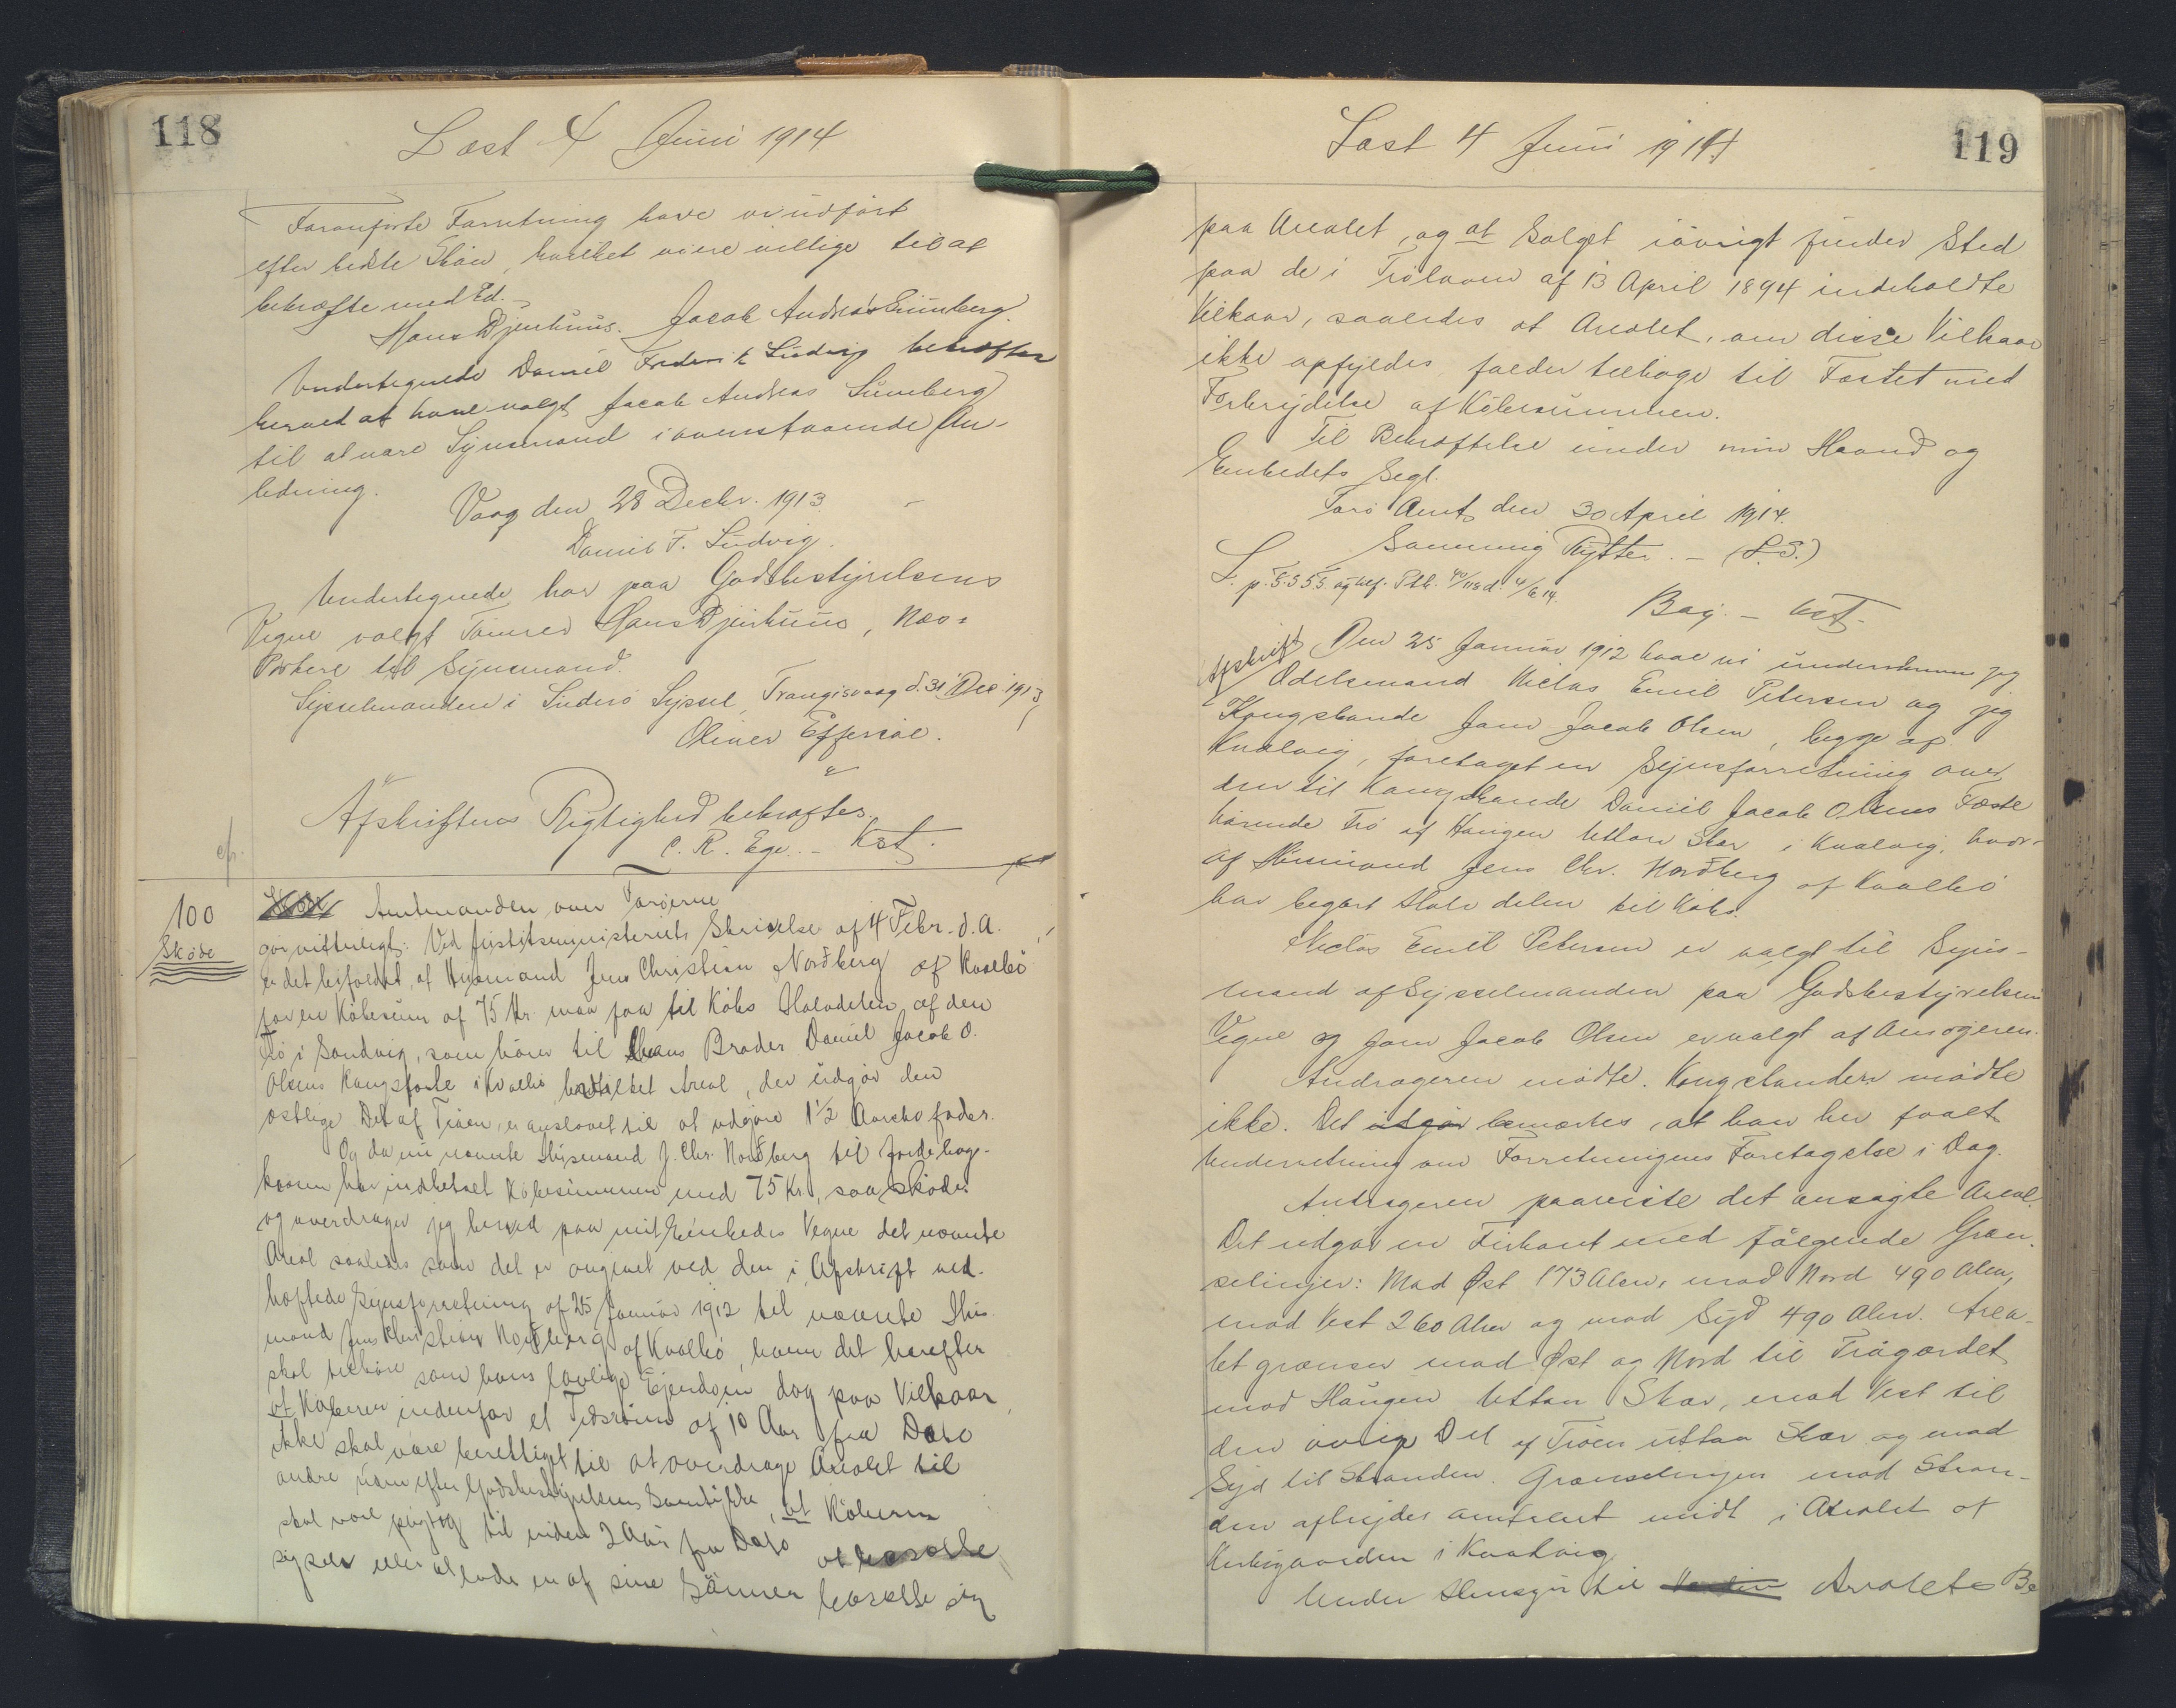 118
Læst 4 Juni 1914
Foranførte Forretning have vi udført
efter bedste Skøn, hvilket vi ere villige til at
bekræfte med Ed.
Hans Djurhuus. Jacob Andreas Lümberg.
Undertegnede Daniel Frederik Ludvig bekræfter
herved at have valgt Jacob Andreas Lümberg
til at være Synsmand i ovenstaaende An-
ledning.
Vaag den 28 Decbr. 1913.
Daniel F. Ludvig.
Undertegnede har paa Godsbestyrelsens
Vegne valgt Tømrer Hans Djurhuus, Næs i
Porkere til Synsmand.
Sysselmanden i Suderø Syssel, Trangisvaag d. 31 Dec 1913
Oliver Effersøe.
Afskriftens Rigtighed bekræftes.
C. R. Ege. – Kst.
cfr.
100
Skøde
Amtmanden over Færøerne
gør vitterligt: Ved Justitsministeriets Skrivelse af 4 Febr. d. A.
er det bifaldet, at Husmand Jens Christian Nordberg af Kvalbø
for en Købesum af 75 Kr. maa faa til Købs Halvdelen af den
Trø i Sandvig, som hører til hans Broder Daniel Jacob O.
Olsens Kongsfæste i Kvalbø, hvilket Areal, der udgør den
østlige Del af Trøen, er anslaaet til at udgøre 1½ Aarskofoder.
Og da nu nævnte Husmand J. Chr. Nordberg til Jordebogs-
kassen har indbetalt Købesummen med 75 Kr., saa skøder
og overdrager jeg herved paa mit Embedes Vegne det nævnte
Areal saaledes som det er angivet ved den i Afskrift ved-
hæftede Synsforretning af 25 Januar 1912 til nævnte Hus
mand Jens Christian Nordberg af Kvalbø, hvem det herefter
skal tilhøre som hans lovlige Ejendom dog paa Vilkaar
at Køberen indenfor et Tidsrum af 10 Aar fra Dato
ikke skal være berettiget til at overdrage Arealet til
andre uden efter Godsbestyrelsens Samtykke, at Køberen
skal være pligtig til inden 2 Aar fra Dato at bosætte
sig selv eller at lade en af sine Sønner bosætte sig
119
Læst 4 Juni 1914
paa Arealet, og at Salget iøvrigt finder Sted
paa de i Trøloven af 13 April 1894 indeholdte
Vilkaar, saaledes at Arealet, om disse Vilkaar
ikke opfyldes falder tilbage til Fæstet med
Forbrydelse af Købesummen.
Til Bekræftelse under min Haand og
Embedets Segl.
Færø Amt, den 30 April 1914.
Svenning Rytter. – (L.S.)
Bag. – Kst.
Afskrift
Den 25 Januar 1912 have vi underskrevne jeg
Odelsmand Niclas Emil Petersen og jeg
Kongsbonde Joen Jacob Olsen, begge af
Kvalvig, foretaget en Synsforretning over
den til Kongsbonde Daniel Jacob Olsens Fæste
hørende Trø af Haugen Uttan Skar i Kvalvig, hvor-
af Husmand Jens Chr. Nordberg af Kvalbø
har begært Halvdelen til Købs.
Niclas Emil Petersen er valgt til Syns-
mand af Sysselmanden paa Godsbestyrelsens
Vegne og Joen Jacob Olsen er valgt af Ansøgeren.
Andrageren mødte. Kongsbonden mødte
ikke. Det udgør bemærkes, at han har faaet
Underretning om Forretningens Foretagelse i Dag.
Andrageren paaviste det ansøgte Areal.
Det udgør en Firkant med følgende Græn-
selinjer: Mod Øst 173 Alen, mod Nord 490 Alen,
mod Vest 260 Alen og mod Syd 490 Alen. Area-
let grænser mod Øst og Nord til Trøgærdet
mod Haugen Uttan Skar, mod Vest til
den øvrige Del af Trøen uttan Skar og mod
Syd til Stranden. Grænselinjen mod Stran-
den afbrydes omtrent midt i Arealet af
Kirkegaarden i Kvalvig.
Under Hensyn til Arealets Be